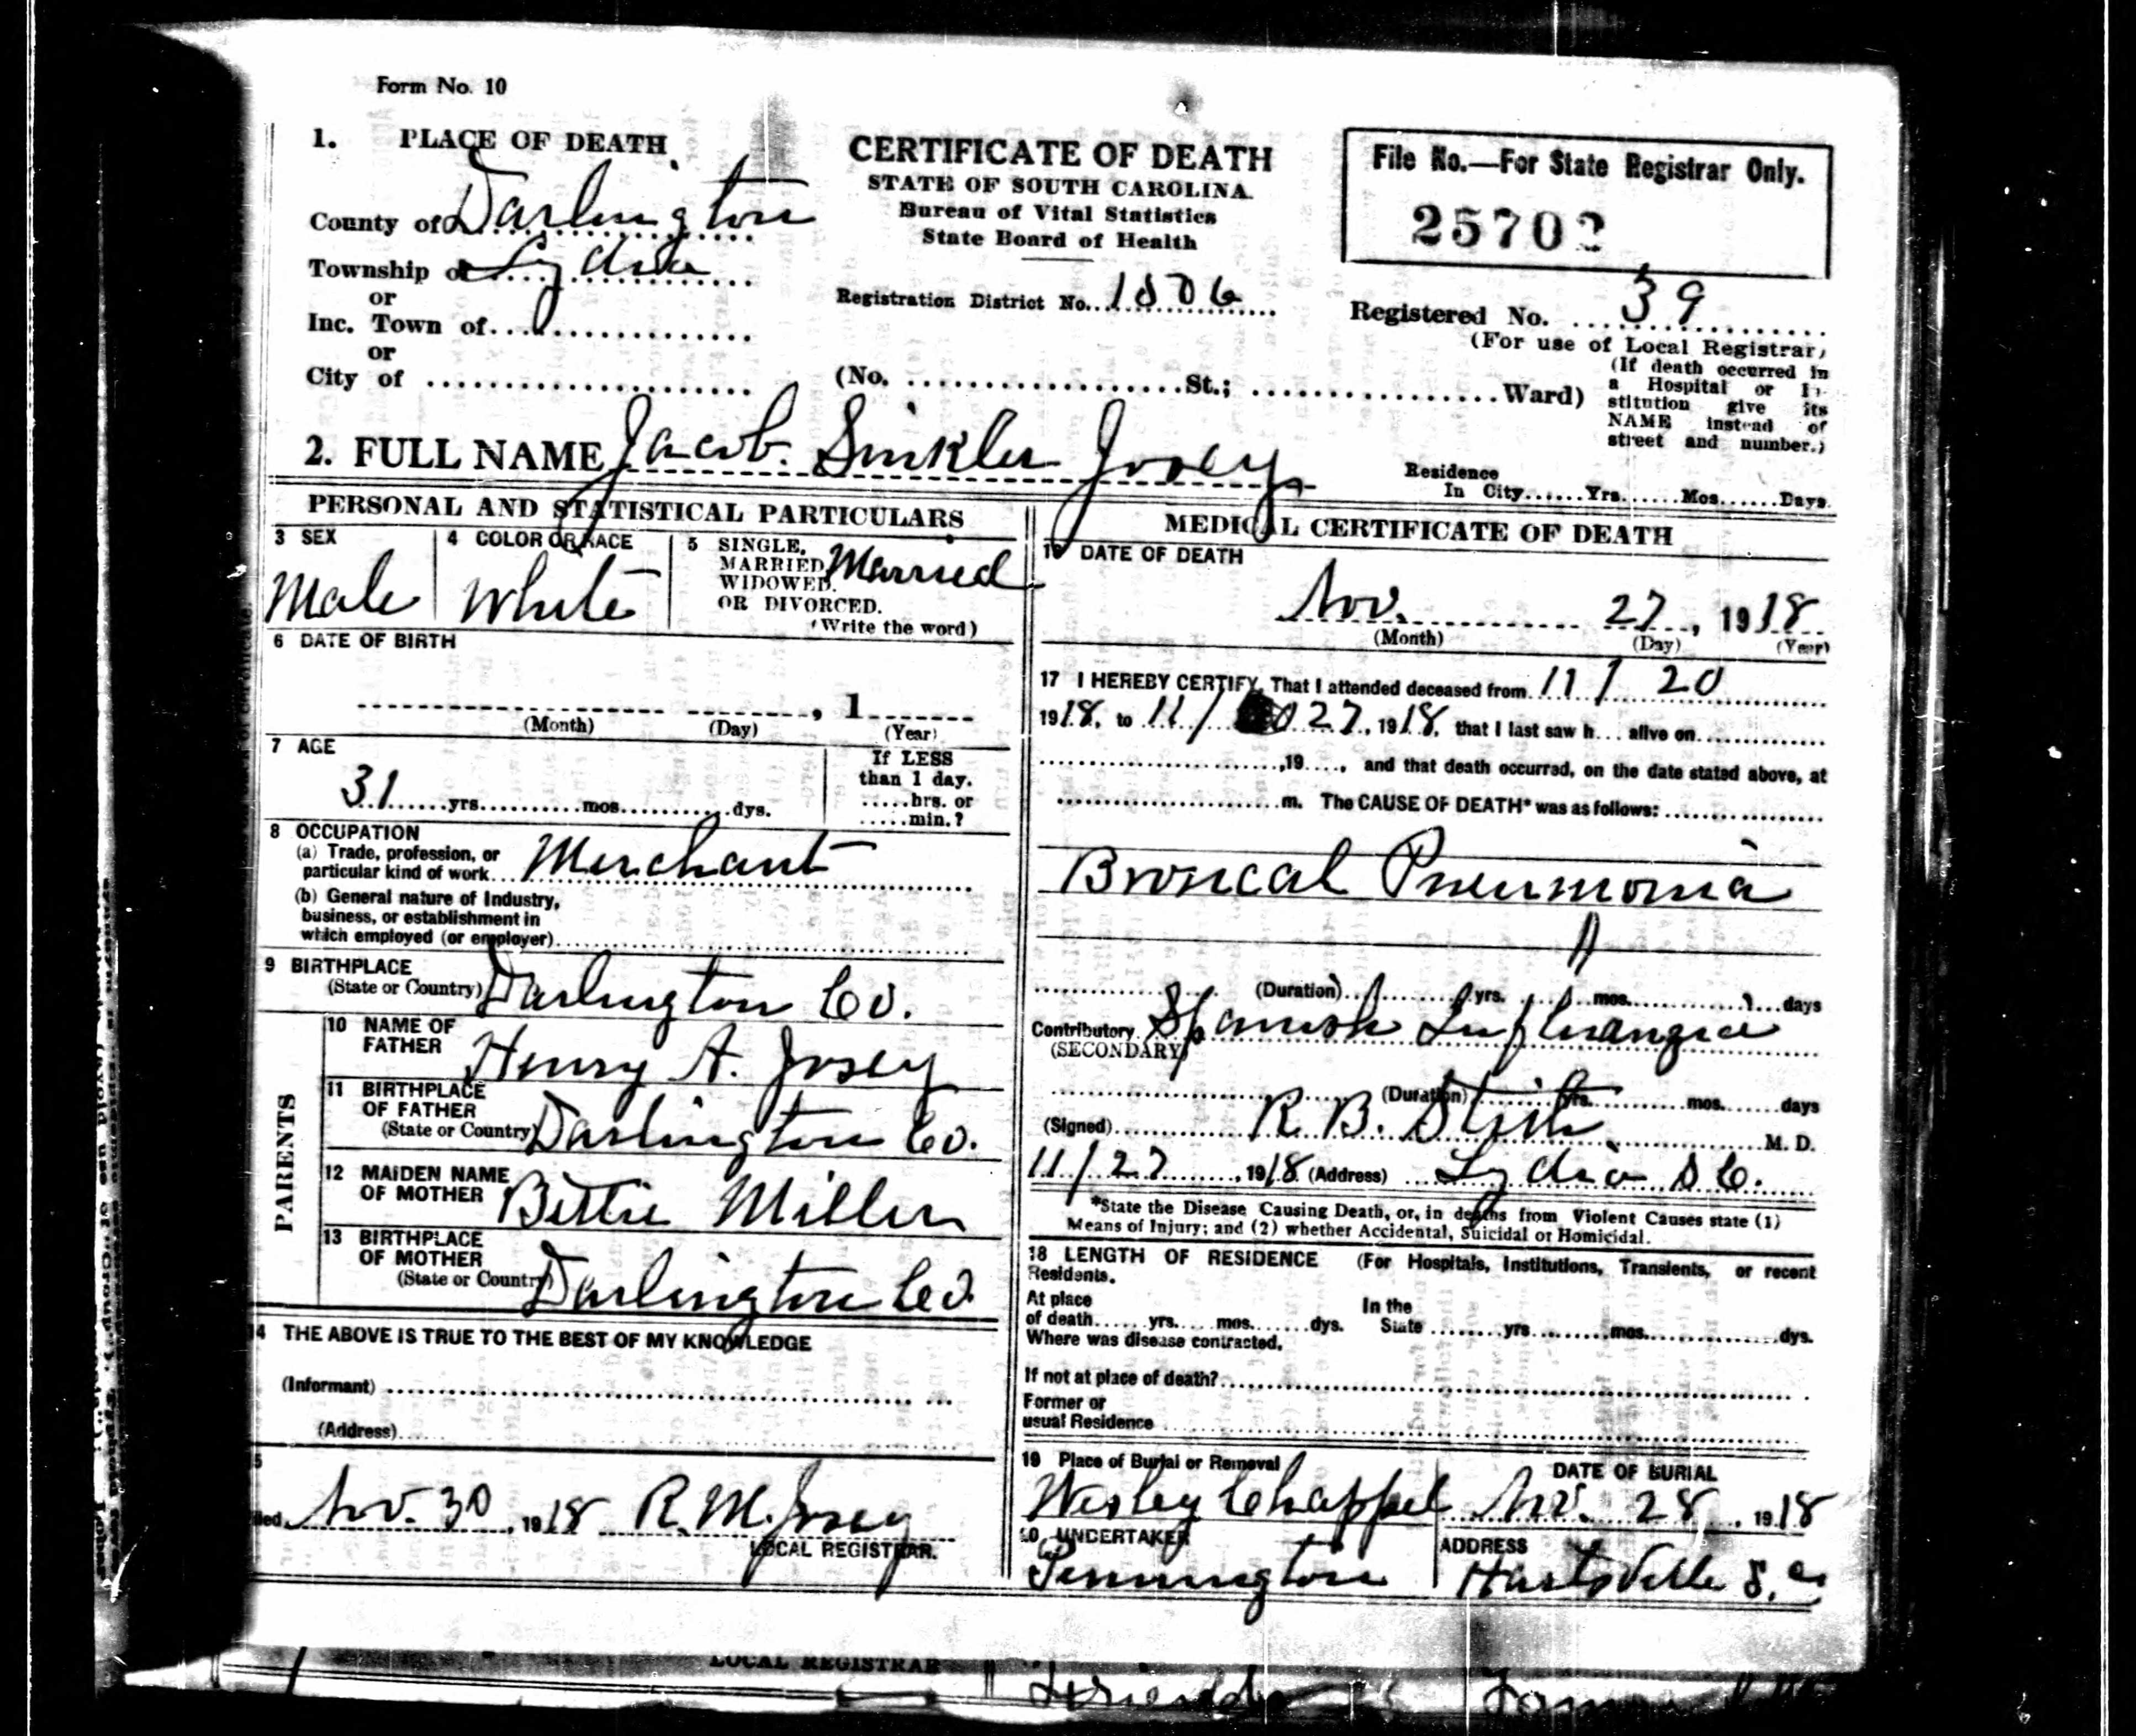 Form No. 10
1. PLACE OF DEATH
County of Darlington
Township of Lydia
or
Inc. Town of
or
City of
CERTIFICATE OF DEATH
STATE OF SOUTH CAROLINA
Bureau of Vital Statistics
State Board of Health
Registration District No. 1506
(No. St.; Ward)
File No.—For State Registrar Only.
25702
Registered No. 39
(For use of Local Registrar)
(If death occurred in
a Hospital or In-
stitution give its
NAME instead of
street and number.)
2. FULL NAME Jacob Sinkler Josey
Residence
In City Yrs. Mos. Days
PERSONAL AND STATISTICAL PARTICULARS
3 SEX
Male
4 COLOR OR RACE
White
5 SINGLE,
MARRIED, Married
WIDOWED.
OR DIVORCED.
(Write the word)
6 DATE OF BIRTH
, 1
(Month) (Day) (Year)
7 AGE
31 yrs. mos. dys.
If LESS
than 1 day.
hrs. or
min.?
8 OCCUPATION
(a) Trade, profession, or
particular kind of work Merchant
(b) General nature of Industry,
business, or establishment in
which employed (or employer)
9 BIRTHPLACE
(State or Country) Darlington Co.
PARENTS
10 NAME OF
FATHER Henry A. Josey
11 BIRTHPLACE
OF FATHER
(State or Country) Darlington Co.
12 MAIDEN NAME
OF MOTHER Bettie Miller
13 BIRTHPLACE
OF MOTHER
(State or Country) Darlington Co.
14 THE ABOVE IS TRUE TO THE BEST OF MY KNOWLEDGE
(Informant)
(Address)
5
led Nov. 30, 1918 R. M. Josey
LOCAL REGISTRAR.
MEDICAL CERTIFICATE OF DEATH
16 DATE OF DEATH
Nov. 27, 1918
(Month) (Day) (Year)
17 I HEREBY CERTIFY, That I attended deceased from 11/20
1918, to 11/ 27, 1918, that I last saw h... alive on
,19...., and that death occurred, on the date stated above, at
m. The CAUSE OF DEATH* was as follows:
Broncal Pneumonia
(Duration) yrs. mos. days
Contributory Spanish Influangia
(SECONDARY)
(Duration) yrs. mos. days
(Signed) R. B. Stith M. D.
11/27, 1918 (Address) Lydia S C.
*State the Disease Causing Death, or, in deaths from Violent Causes state (1)
Means of Injury; and (2) whether Accidental, Suicidal or Homicidal.
18 LENGTH OF RESIDENCE (For Hospitals, Institutions, Transients, or recent
Residents.
At place
of death yrs. mos. dys. In the State yrs. mos. dys.
Where was disease contracted,
If not at place of death?
Former or
usual Residence
19 Place of Burial or Removal
Wesley Chappel
DATE OF BURIAL
Nov. 28, 1918
20 UNDERTAKER
Pennington
ADDRESS
Hartsville S. C.
LOCAL REGISTRAR